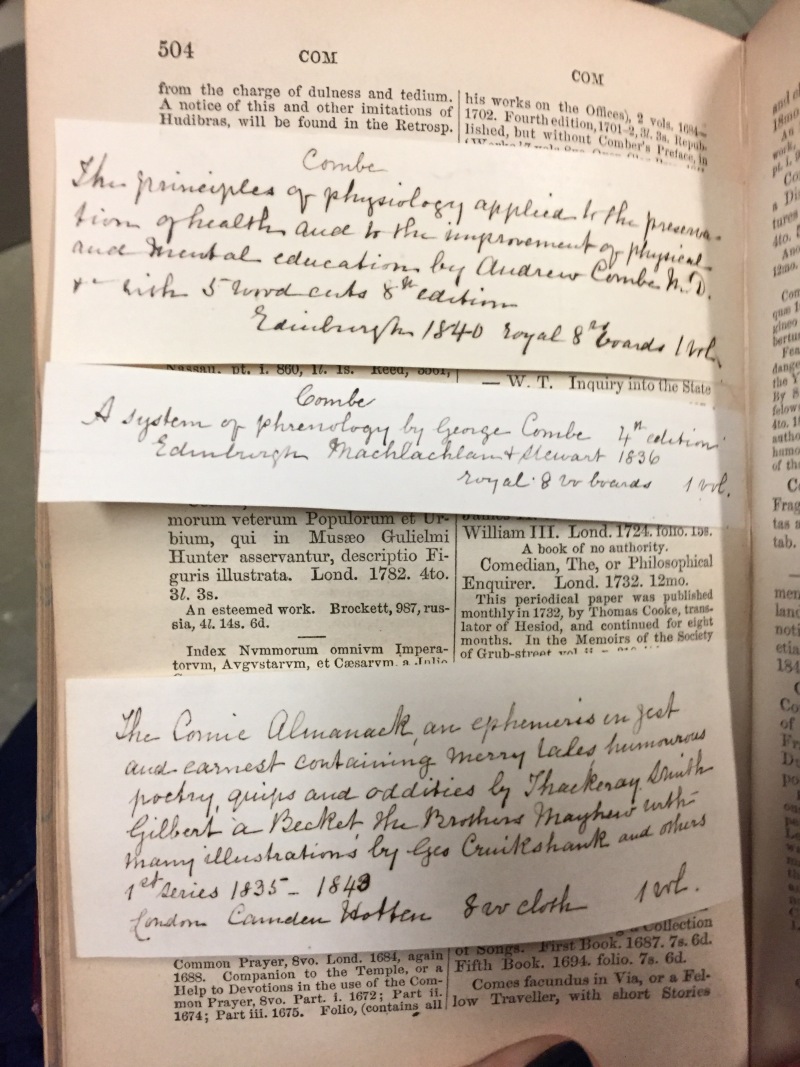 504
COM
COM
from the charge of dulness and tedium.
A notice of this and other imitations of
Hudibras, will be found in the Retrosp.
his works on the Offices), 2 vols. 1694–
1702. Fourth edition, 1701–2, 3l. 3s. Repub-
lished, but without Comber's Preface, in
Combe
The principles of physiology applied to the preserva-
tion of health and to the improvement of physical
and mental education by Andrew Combe M.D.
with 5 wood cuts 8th edition
Edinburgh 1840 royal 8vo boards 1 vol.
Nassau. pt. i. 860, 1l. 1s. Reed,
— W. T. Inquiry into the State
Combe
A system of phrenology by George Combe 4th edition
Edinburgh Machlachlan & Stewart 1836
royal 8vo boards 1 vol.
morum veterum Populorum et Ur-
bium, qui in Musæo Gulielmi
Hunter asservantur, descriptio Fi-
guris illustrata. Lond. 1782. 4to.
3l. 3s.
An esteemed work. Brockett, 987, rus-
sia, 4l. 14s. 6d.
Index Nvmmorum omnivm Impera-
torvm, Avgvstarvm, et Cæsarvm, a Julio
William III. Lond. 1724. folio. 15s.
A book of no authority.
Comedian, The, or Philosophical
Enquirer. Lond. 1732. 12mo.
This periodical paper was published
monthly in 1732, by Thomas Cooke, trans-
lator of Hesiod, and continued for eight
months. In the Memoirs of the Society
of Grub-street
The Comic Almanack, an ephemeris in jest
and earnest containing merry tales humourous
poetry, quips and oddities by Thackeray Smith
Gilbert a Becket the Brothers Mayhew with
many illustrations by Geo Cruikshank and others
1st series 1835 – 1843
London Camden Hotten 8vo cloth 1 vol.
Common Prayer, 8vo. Lond. 1684, again
1688. Companion to the Temple, or a
Help to Devotions in the use of the Com-
mon Prayer, 8vo. Part. i. 1672; Part ii.
1674; Part iii. 1675. Folio, (contains all
a Collection
of Songs. First Book. 1687. 7s. 6d.
Fifth Book. 1694. folio. 7s. 6d.
Comes facundus in Via, or a Fel-
low Traveller, with short Stories